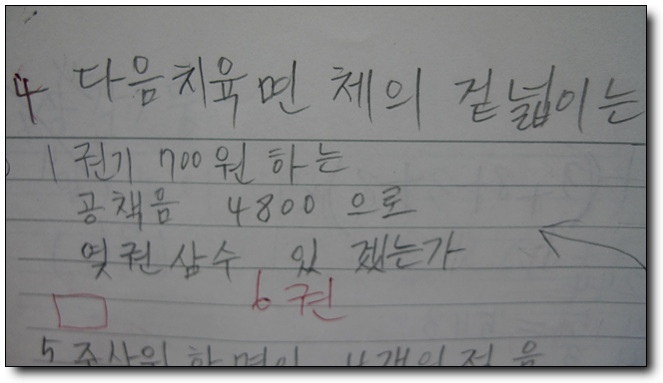 4 다음치육면 체의 겉넓이는
1권기 700원 하는
공책음 4800 으로
몇권삼수 있겠는가
6권
5 주사위 한 면이 4개의 점 음